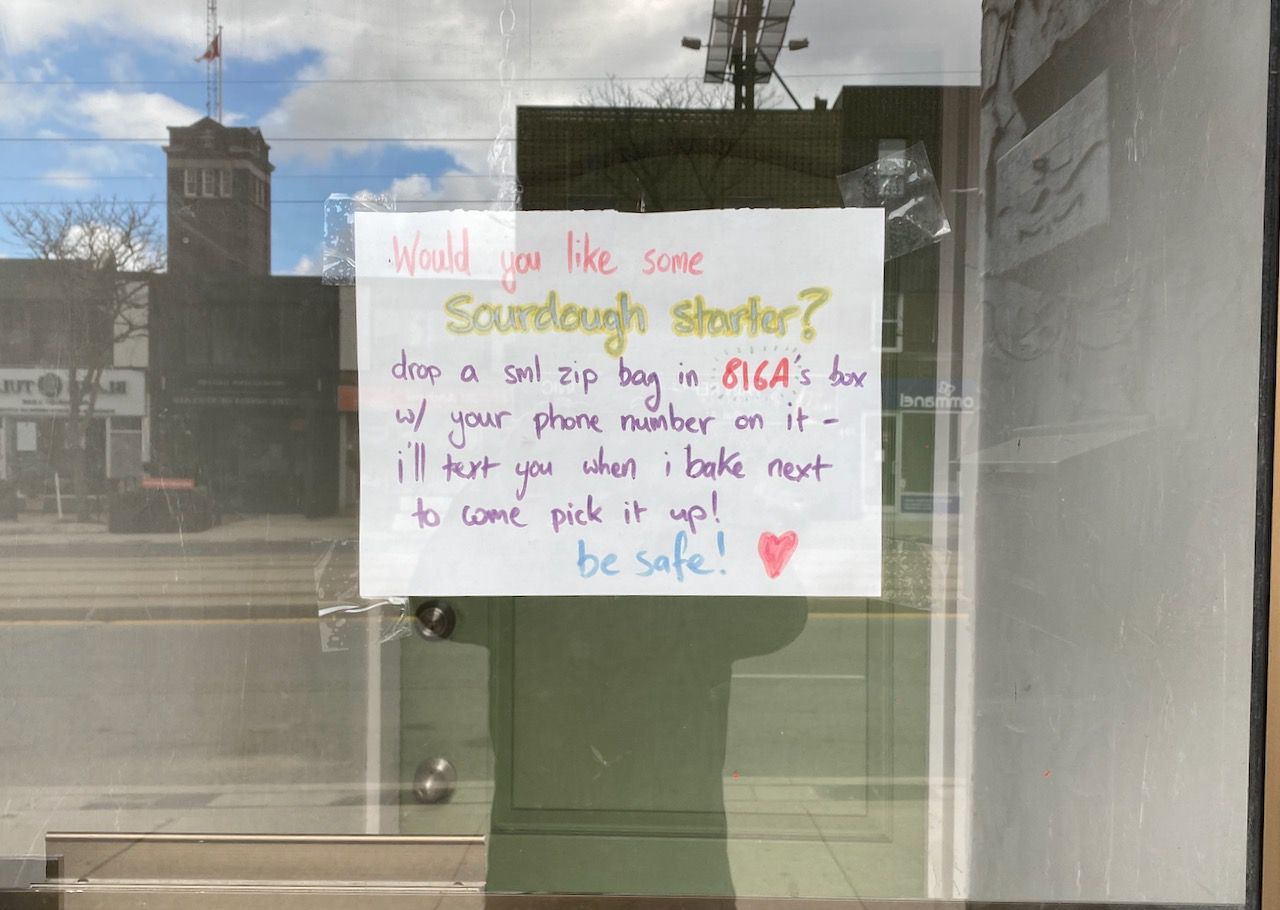 Would you like some
Sourdough starter?
drop a sml zip bag in 816A's box
w/ your phone number on it -
i'll text you when i bake next
to come pick it up!
be safe!